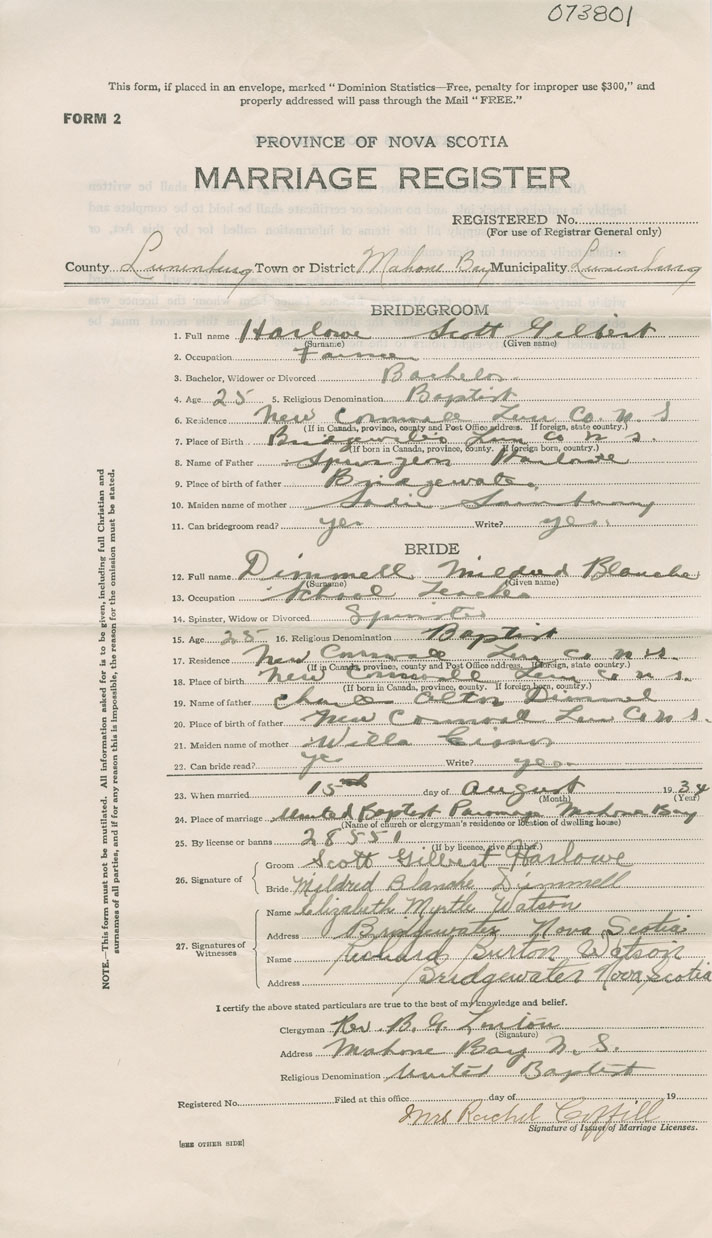 073801
This form, if placed in an envelope, marked "Dominion Statistics—Free, penalty for improper use $300," and
properly addressed will pass through the Mail "FREE."
FORM 2
PROVINCE OF NOVA SCOTIA
MARRIAGE REGISTER
REGISTERED No.
(For use of Registrar General only)
County Lunenburg Town or District Mahone Bay Municipality Lunenburg
BRIDEGROOM
1. Full name Harlowe Scott Gilbert
(Surname) (Given name)
2. Occupation Farmer
3. Bachelor, Widower or Divorced Bachelor
4. Age 25 5. Religious Denomination Baptist
6. Residence New Cornwall Lun Co. N S
(If in Canada, province, county and Post Office address. If foreign, state country.)
7. Place of Birth Bridgewater Lun Co N S.
(If born in Canada, province, county. If foreign born, country.)
8. Name of Father Spurgeon Harlowe
9. Place of birth of father Bridgewater
10. Maiden name of mother Sadie
11. Can bridegroom read? yes Write? yes
BRIDE
12. Full name Dimmell Mildred Blanche
(Surname) (Given name)
13. Occupation School Teacher
14. Spinster, Widow or Divorced Spinster
15. Age 25 16. Religious Denomination Baptist
17. Residence New Cornwall Lun Co N.S.
(If in Canada, province, county and Post Office address. If foreign, state country.)
18. Place of birth New Cornwall Lun Co N S.
(If born in Canada, province, county. If foreign born, country.)
19. Name of father Charles Alton Dimmel
20. Place of birth of father New Cornwall Lun Co N S.
21. Maiden name of mother Willa
22. Can bride read? yes Write? yes
23. When married 15th day of August 1934
(Month) (Year)
24. Place of marriage United Baptist Parsonage Mahone Bay
(Name of church or clergyman's residence or location of dwelling house)
25. By license or banns 28551
(If by licence, give number.)
26. Signature of
Groom Scott Gilbert Harlowe
Bride Mildred Blanche Dimmell
27. Signatures of Witnesses
Name Elizabeth Myrtle Watson
Address Bridgewater Nova Scotia
Name Richard Burton Watson
Address Bridgewater Nova Scotia
I certify the above stated particulars are true to the best of my knowledge and belief.
Clergyman Rev. B. G. Linton
(Signature)
Address Mahone Bay N. S.
Religious Denomination United Baptist
Registered No. Filed at this office day of 19
Mrs Rachel Coffill
Signature of Issuer of Marriage Licenses.
[SEE OTHER SIDE]
NOTE.—This form must not be mutilated. All information asked for is to be given, including full Christian and
surnames of all parties, and if for any reason this is impossible, the reason for the omission must be stated.